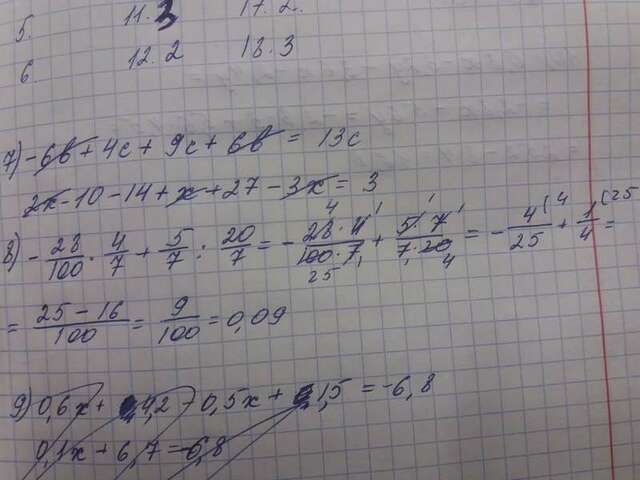 5. 11. 3 17. 2.
6. 12. 2 18. 3
7) -6b + 4c + 9c + 6b = 13c
2x - 10 - 14 + x + 27 - 3x = 3
8) - 28/100 · 4/7 + 5/7 : 20/7 = - 28·4/100·7 + 5·7/7·20 = - 4/25 + 1/4 =
= 25 - 16/100 = 9/100 = 0,09
9) 0,6x + 4,2 - 0,5x + 2,5 = -6,8
0,1x + 6,7 = -6,8